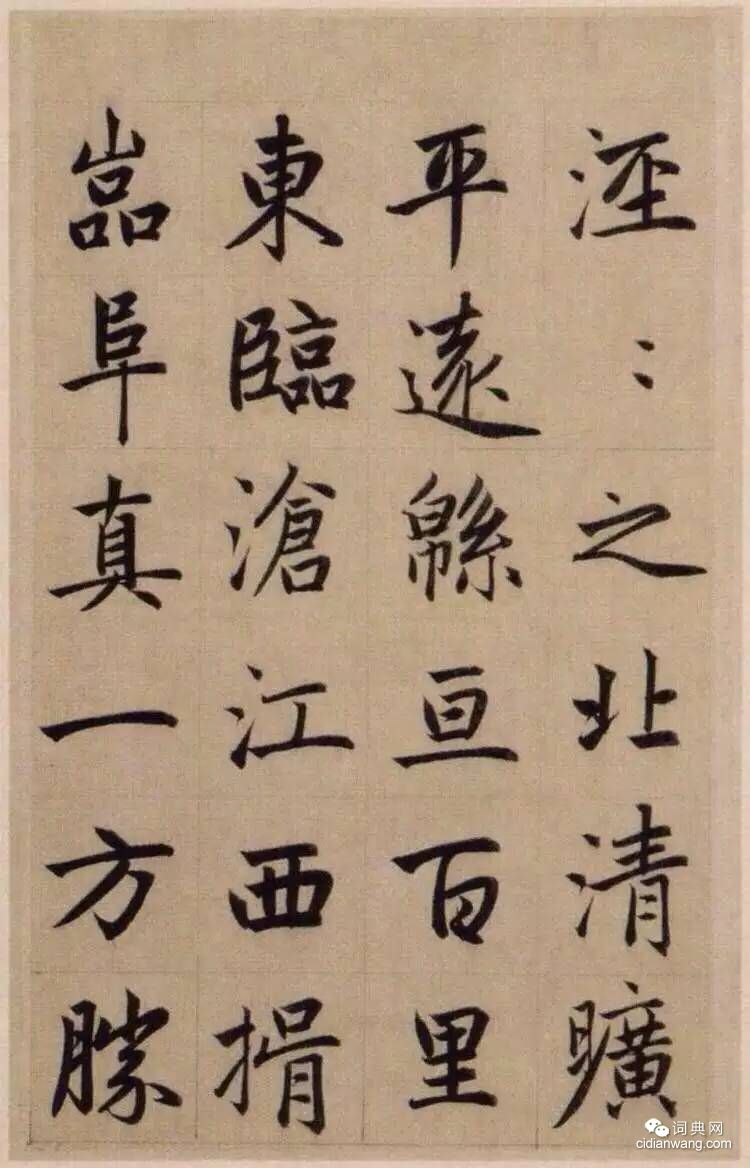 涇〻之北清曠
平遠緜亘百里
東臨滄江西揖
嵓阜真一方勝
词典网
cidianwang.com